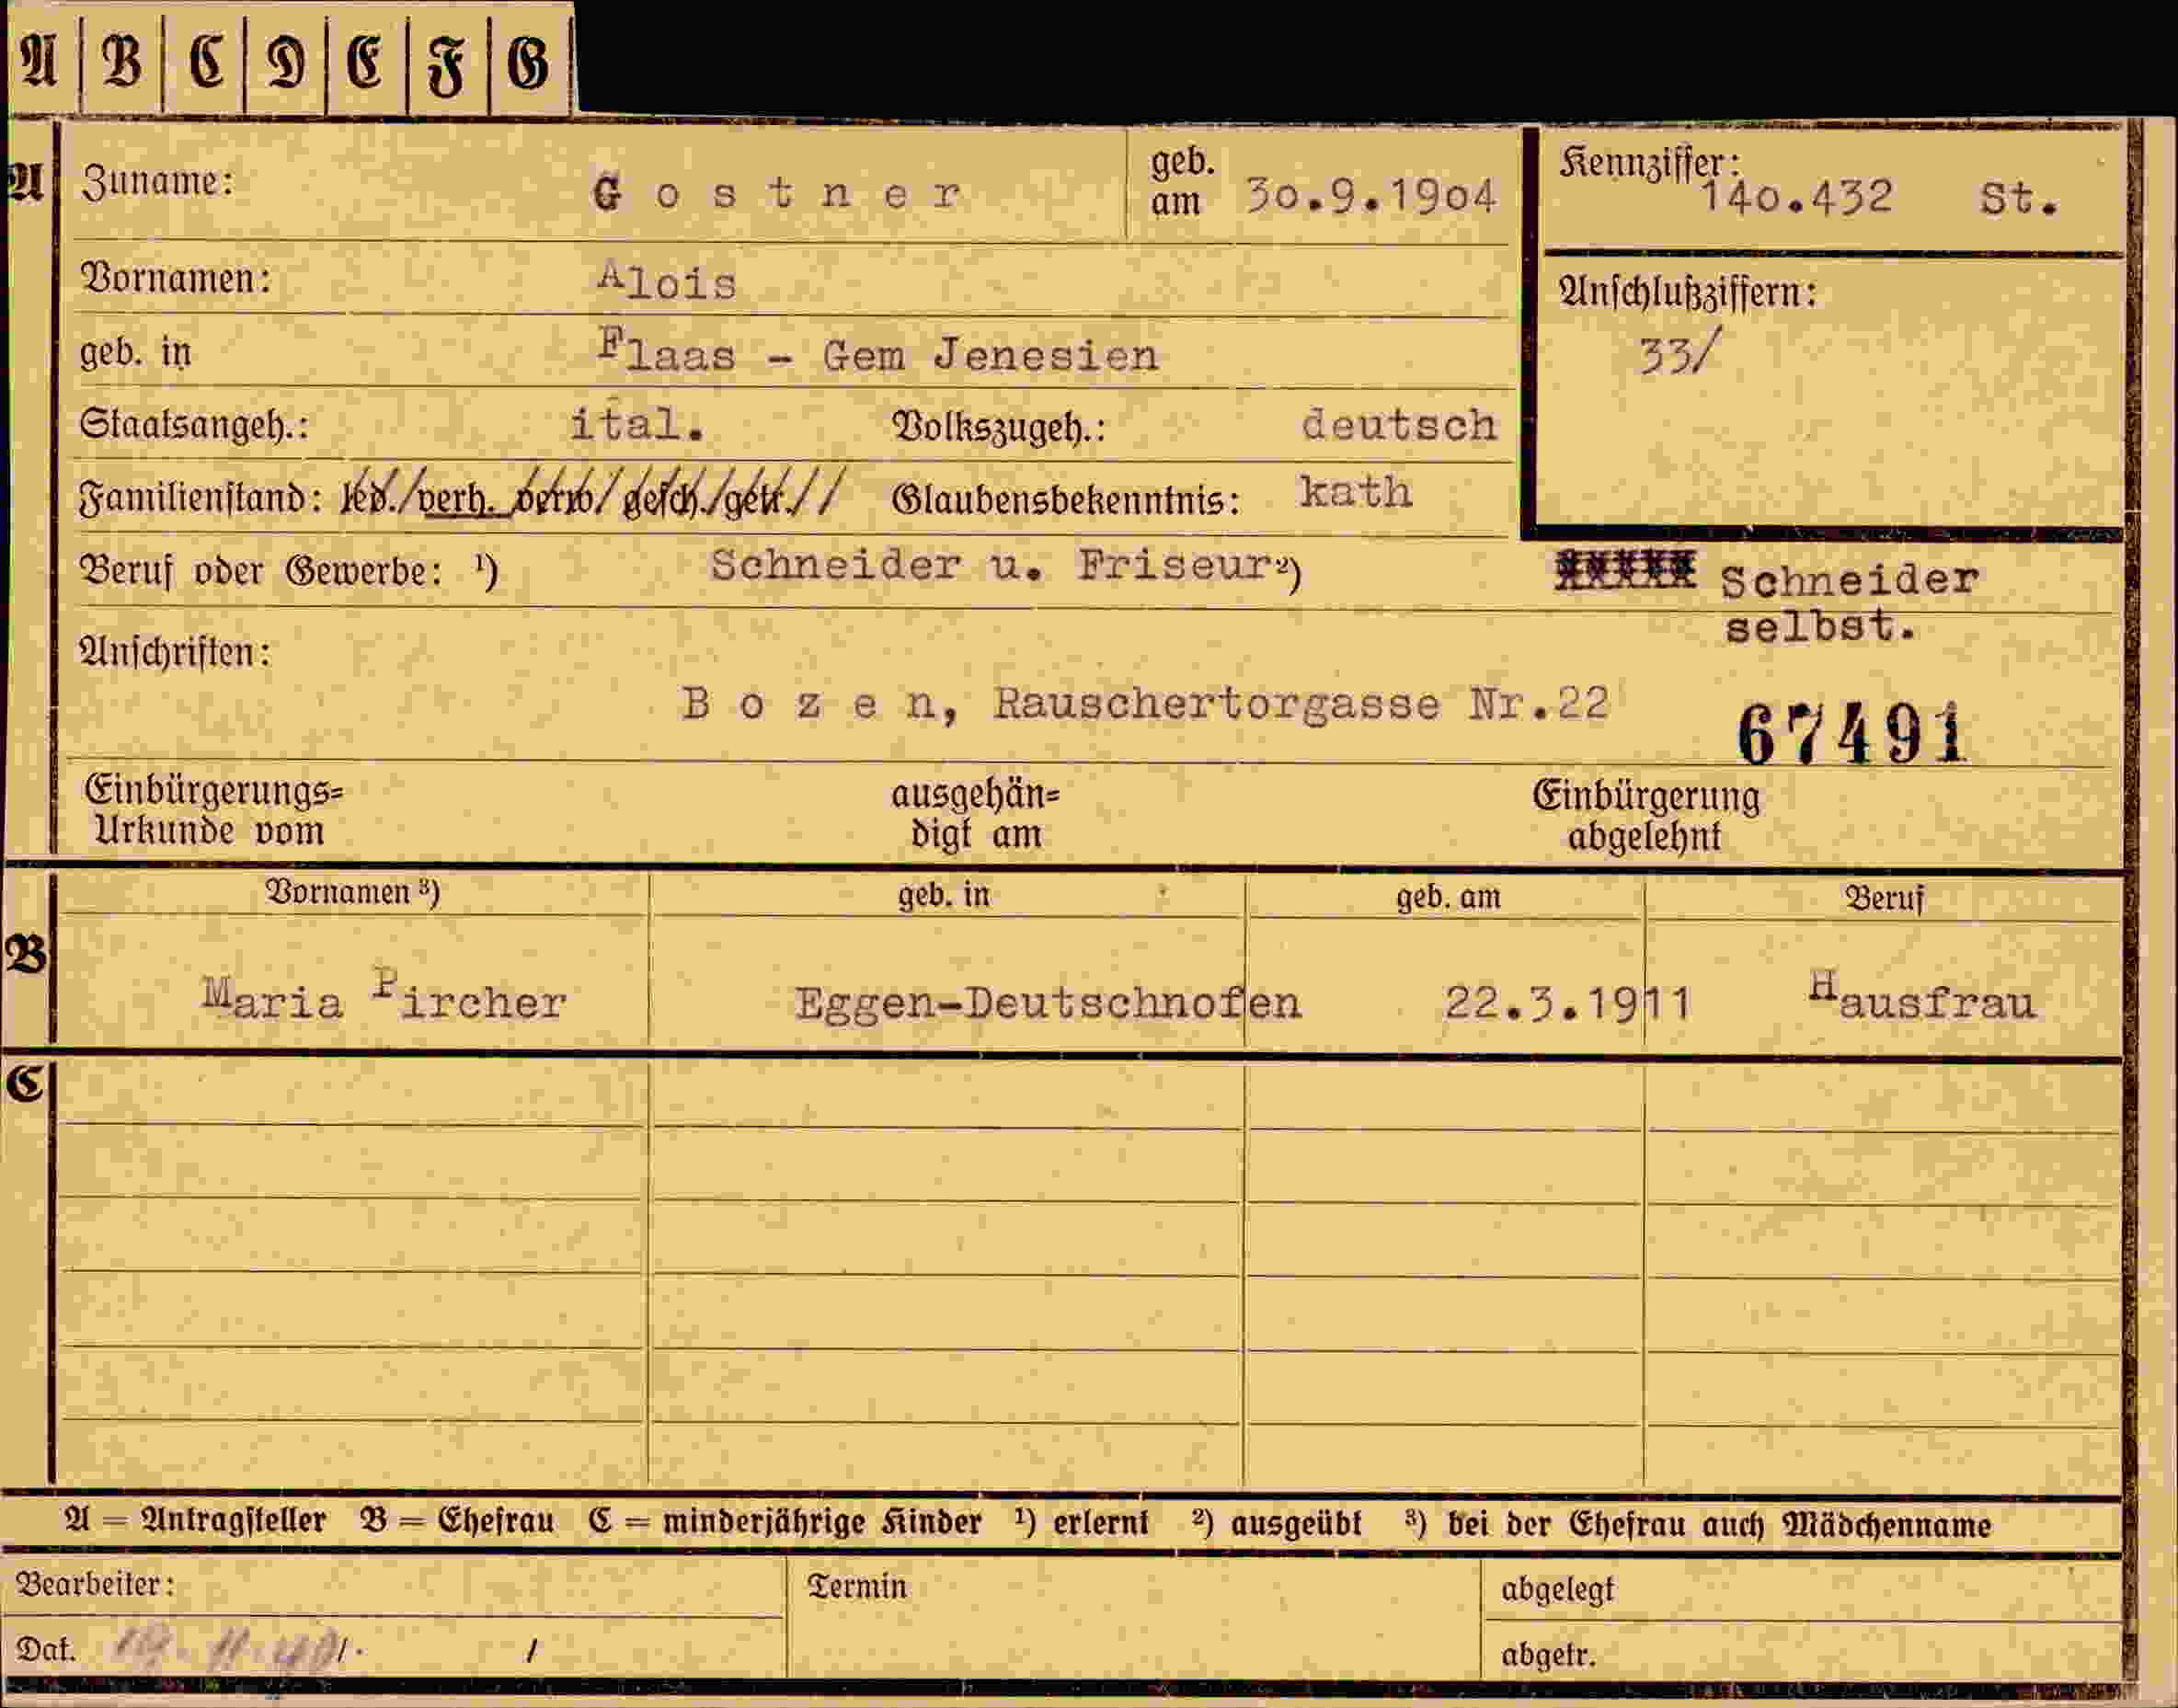 A B C D E F G
A Zuname: Gostner geb. am 30.9.1904 Kennziffer: 140.432 St.
Vornamen: Alois Anschlußziffern:
geb. in Flaas - Gem Jenesien 33/
Staatsangeh.: ital. Volkszugeh.: deutsch
Familienstand: led./verh. verw/gesch./getr.// Glaubensbekenntnis: kath
Beruf oder Gewerbe: ¹) Schneider u. Friseur ²) Schneider
selbst.
Anschriften:
Bozen, Rauschertorgasse Nr.22 67491
Einbürgerungs= ausgehän= Einbürgerung
Urkunde vom digt am abgelehnt
Vornamen ³) geb. in geb. am Beruf
B
Maria Pircher Eggen-Deutschnofen 22.3.1911 Hausfrau
C
A = Antragsteller B = Ehefrau C = minderjährige Kinder ¹) erlernt ²) ausgeübt ³) bei der Ehefrau auch Mädchenname
Bearbeiter: Termin abgelegt
Dat. abgetr.